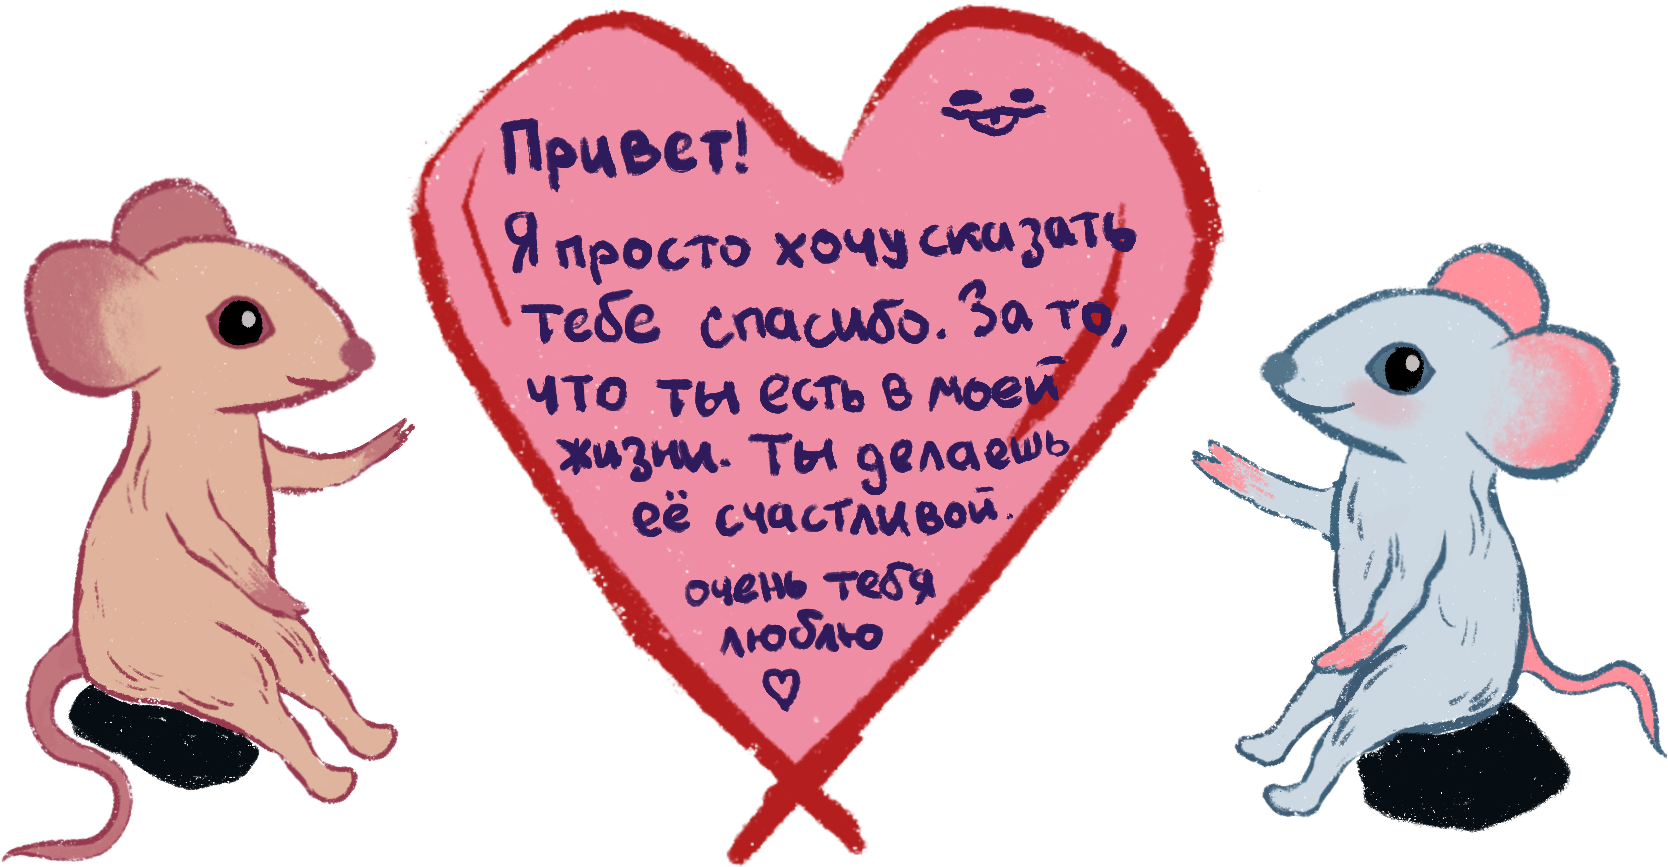 Привет!
Я просто хочу сказать
тебе спасибо. За то,
что ты есть в моей
жизни. Ты делаешь
её счастливой.
очень тебя
люблю
♡